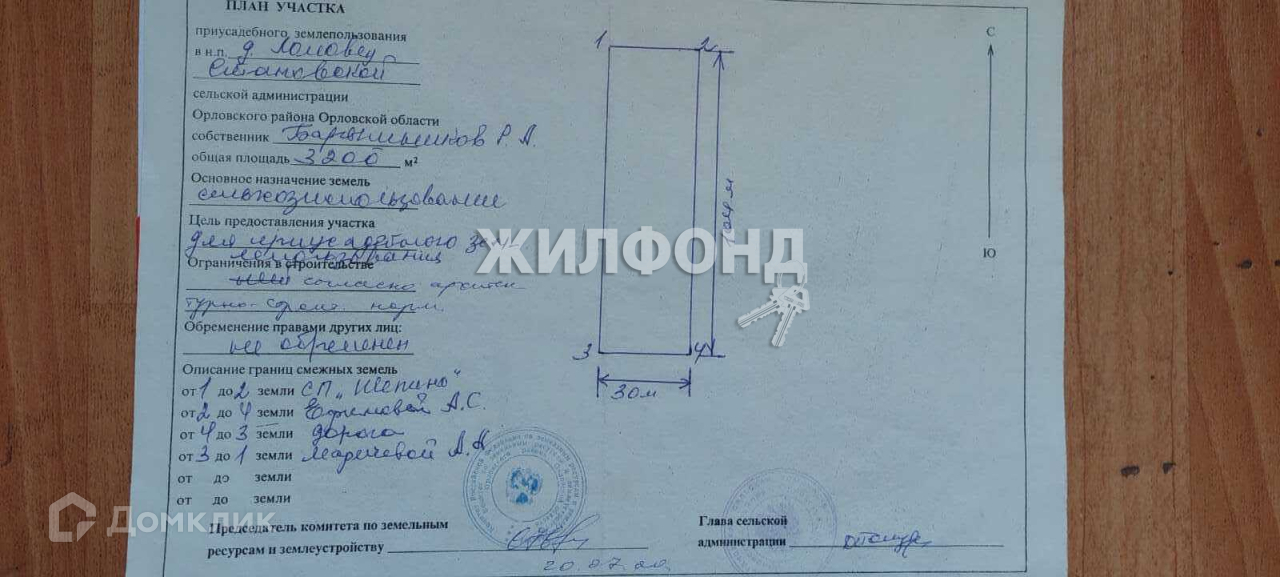 ПЛАН УЧАСТКА
приусадебного землепользования
в н.п. д. Ломовец
Становской
сельской администрации
Орловского района Орловской области
собственник Р. А.
общая площадь 3200 м²
Основное назначение земель
сельхозиспользования
Цель предоставления участка
для приусадебного
Ограничения в строительстве
согласно архитек-
турно-строит. норм.
Обременение правами других лиц:
не обременен
Описание границ смежных земель
от 1 до 2 земли СП „Шепино"
от 2 до 4 земли Ефремовой А.С.
от 4 до 3 земли дорога
от 3 до 1 земли А.Н
от до земли
от до земли
Председатель комитета по земельным
ресурсам и землеустройству
20.07.00
Глава сельской
администрации
1 2
104 м
3 4
30 м
С
Ю
ЖИЛФОНД
Домклик